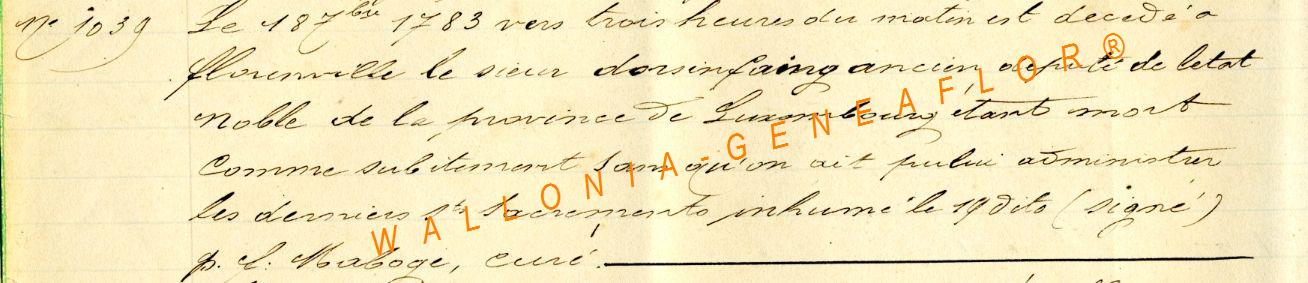 N° 1039 Le 18 7bre 1783 vers trois heures du matin est decedé a
florenville le sieur dorsinfaing ancien deputé de letat
noble de la province de Luxembourg étant mort
comme subitement sans qu'on ait pu lui administrer
les derniers Sts Sacrements inhumé le 19 dito (signé)
p. f. Maboge, curé.
WALLONIA-GENEAFLOR®